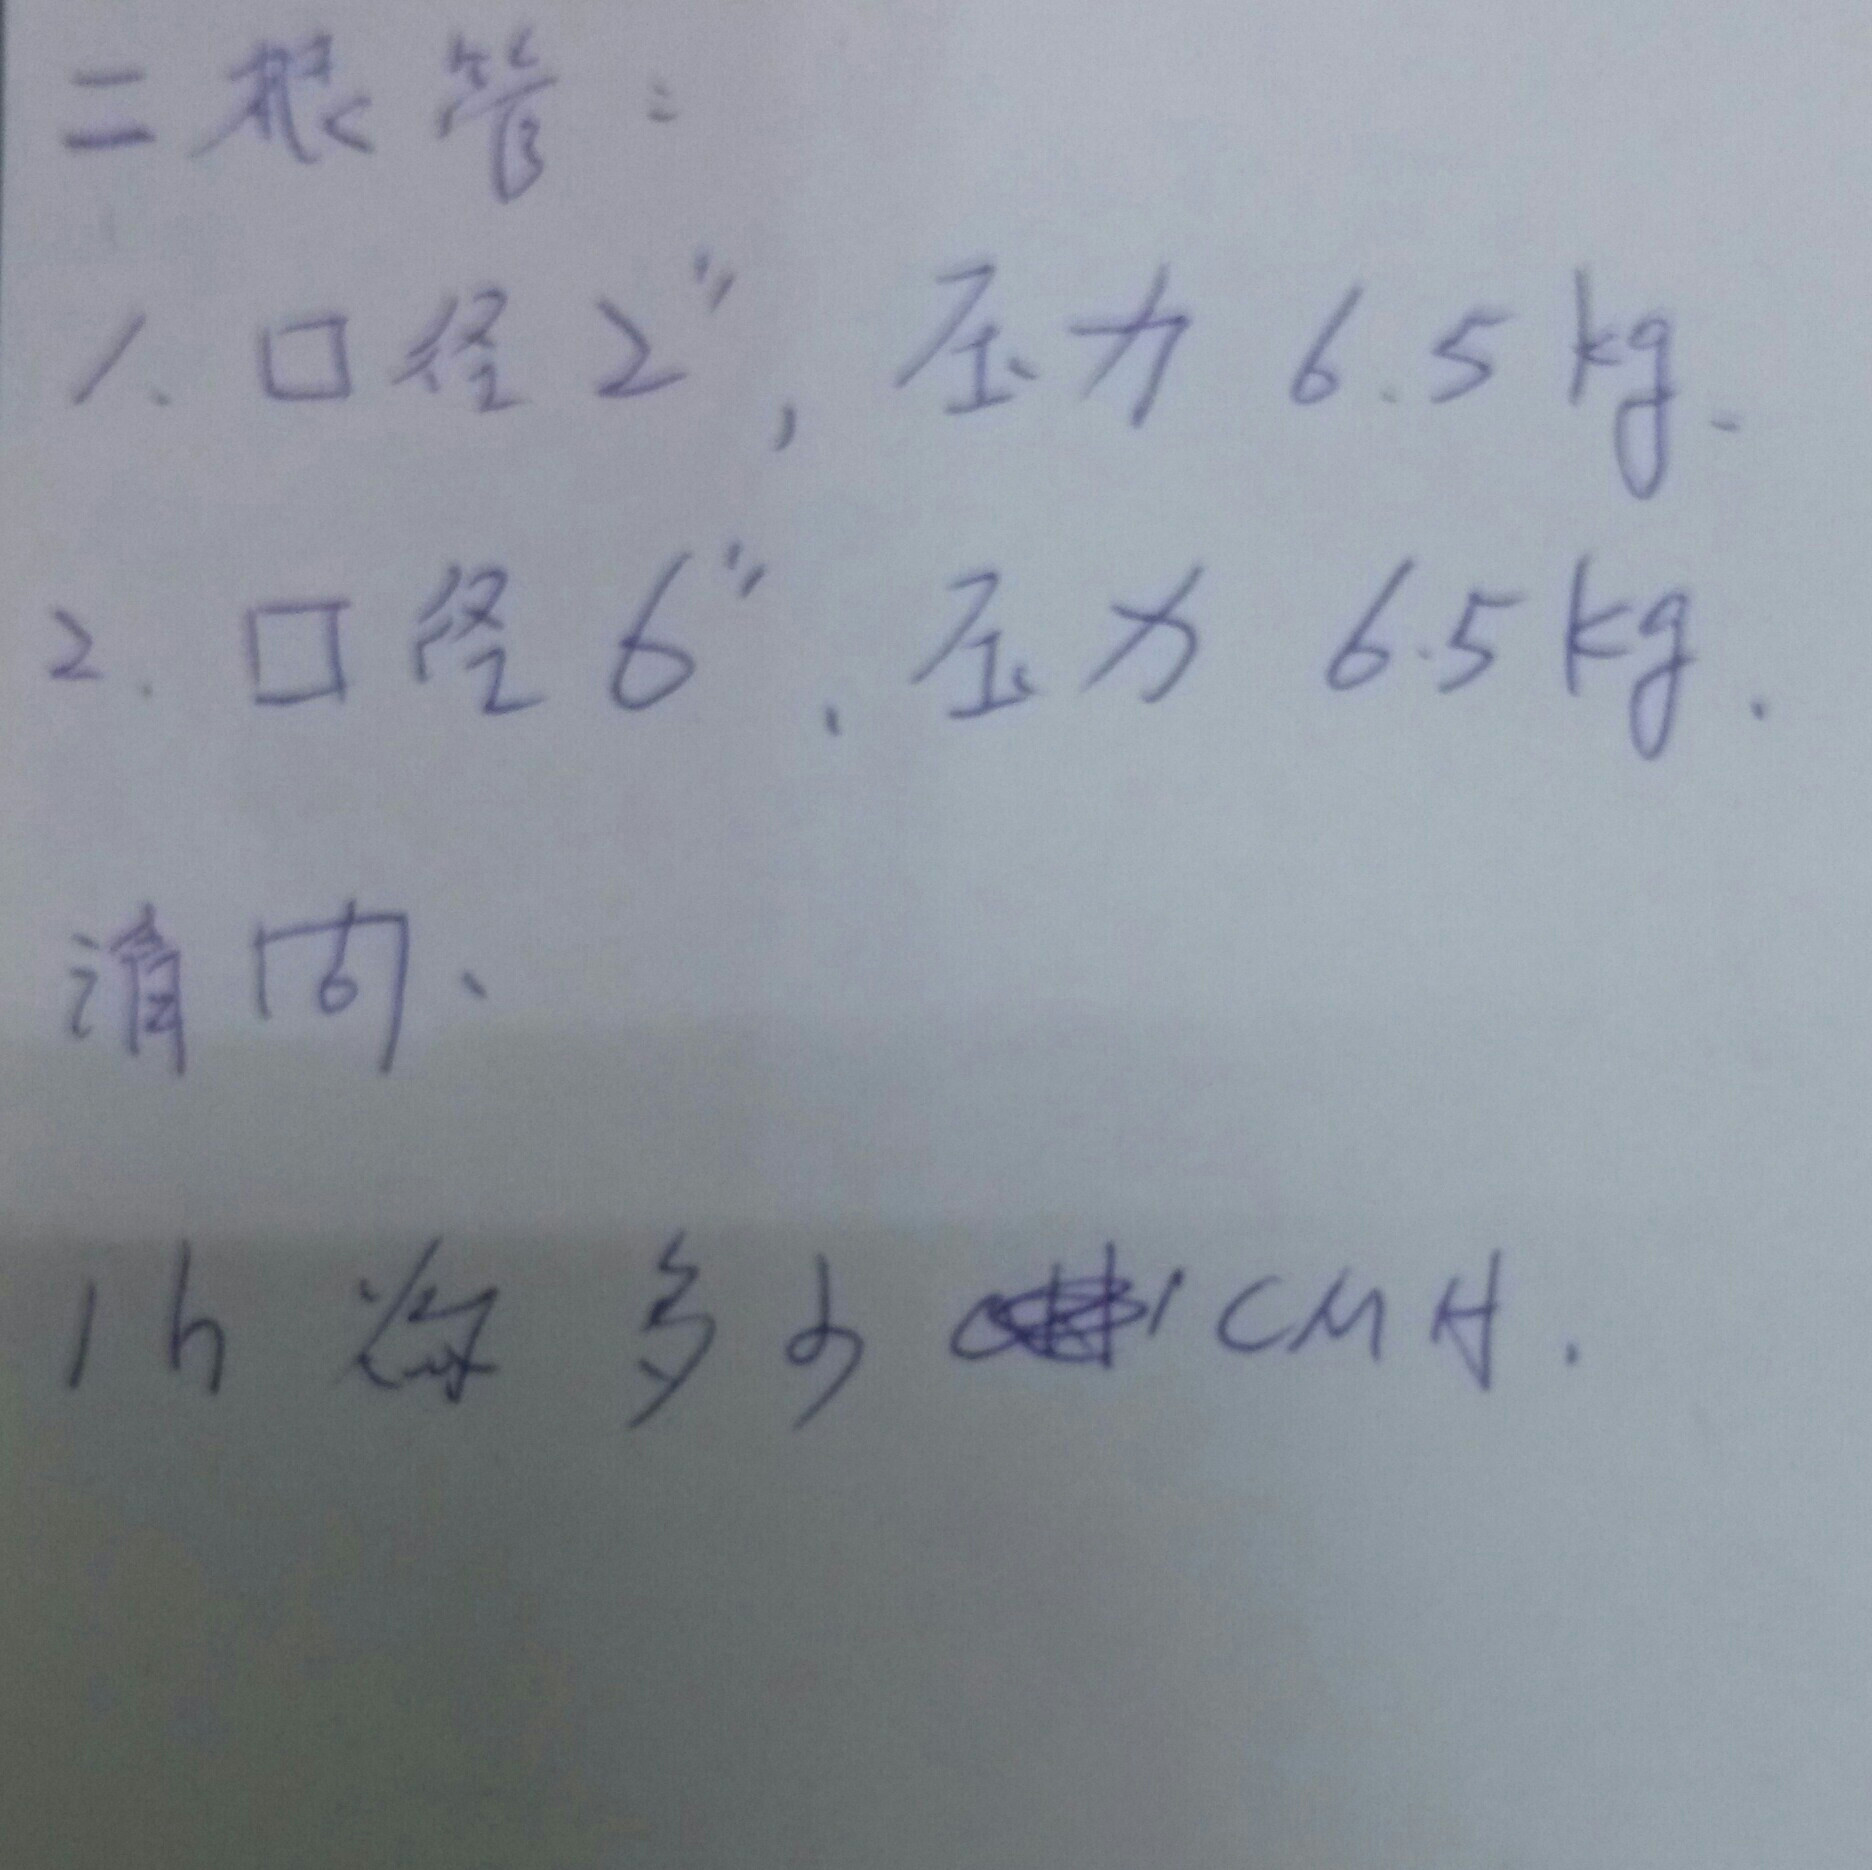 二根管:
1. 口径2", 压力 6.5kg.
2. 口径6", 压力 6.5kg.
请问、
1h 多少 CMH.